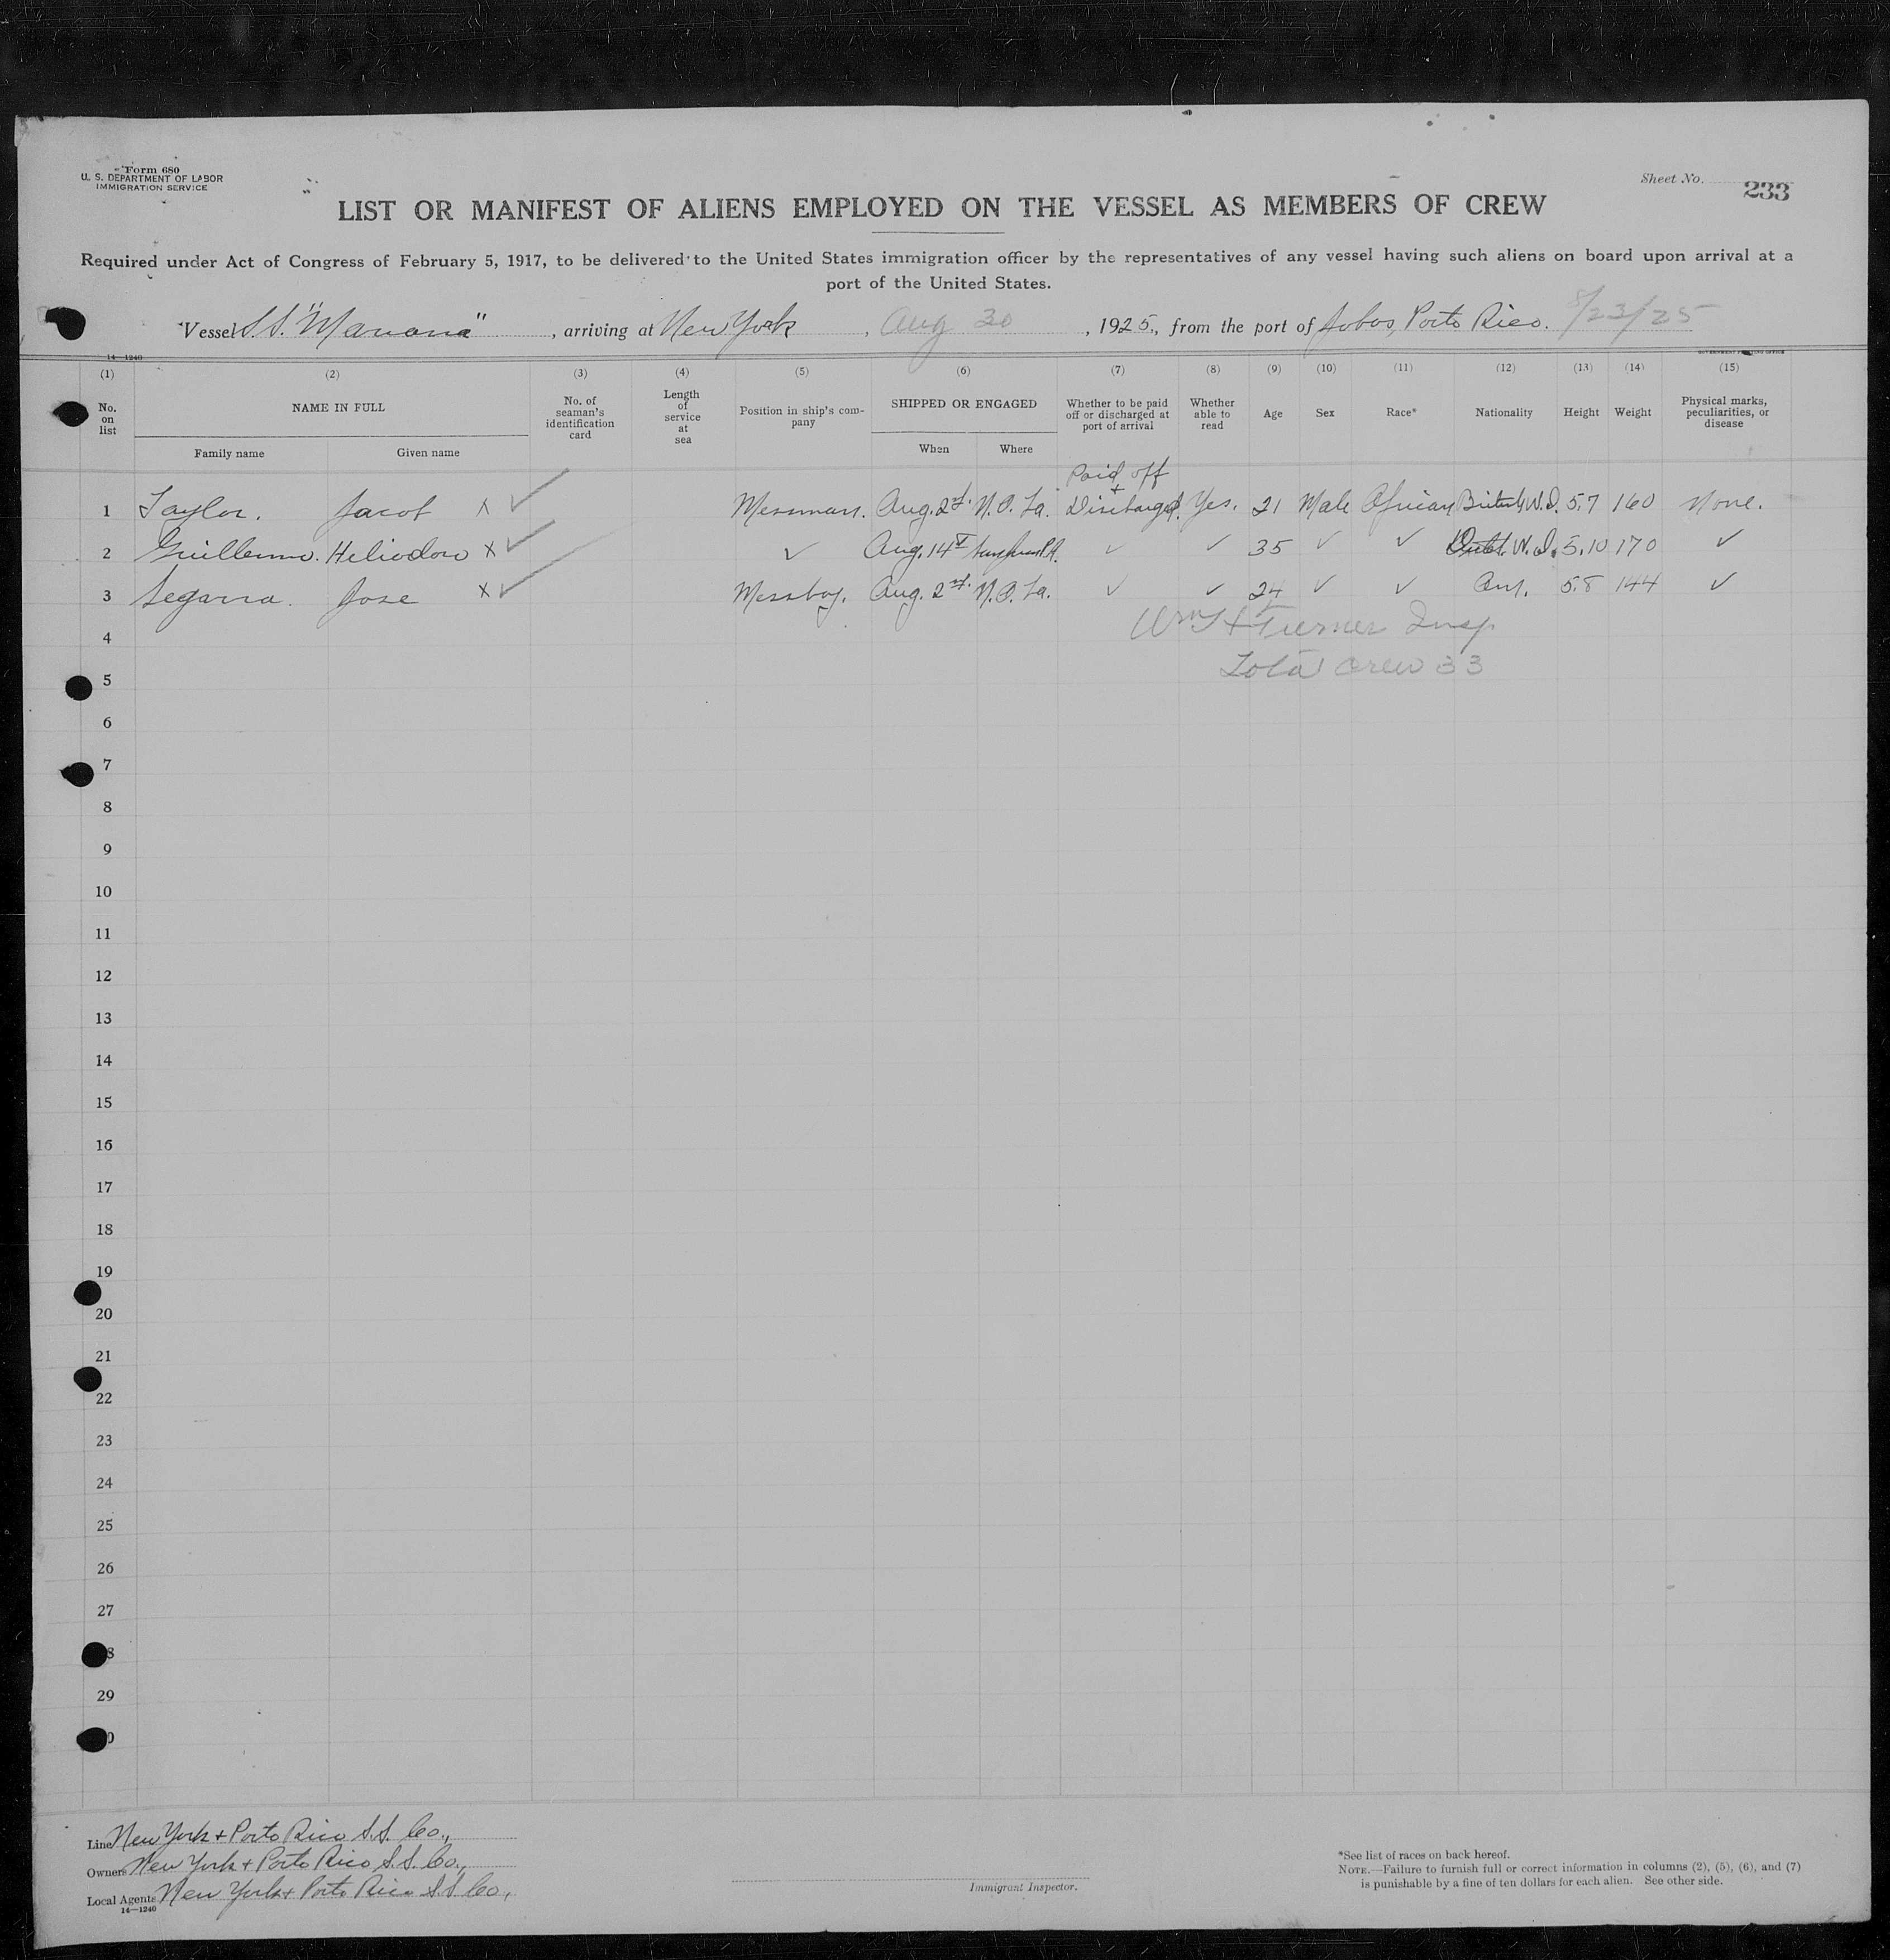 Form 680
U. S. DEPARTMENT OF LABOR
IMMIGRATION SERVICE
Sheet No. 233
LIST OR MANIFEST OF ALIENS EMPLOYED ON THE VESSEL AS MEMBERS OF CREW
Required under Act of Congress of February 5, 1917, to be delivered to the United States immigration officer by the representatives of any vessel having such aliens on board upon arrival at a
port of the United States.
Vessel S.S. "Mariana", arriving at New York, Aug 30, 1925, from the port of Jobos, Porto Rico. 8/23/25
14—1240
GOVERNMENT PRINTING OFFICE
(1) (2) (3) (4) (5) (6) (7) (8) (9) (10) (11) (12) (13) (14) (15)
No. on list NAME IN FULL No. of seaman's identification card Length of service at sea Position in ship's company SHIPPED OR ENGAGED Whether to be paid off or discharged at port of arrival Whether able to read Age Sex Race* Nationality Height Weight Physical marks, peculiarities, or disease
Family name Given name When Where
Paid off
1 Taylor. Jacob x ✓ Messman. Aug. 2nd. N.O. La. + Discharged. Yes. 21 Male African British W.I. 5.7 160 None.
2 Guillermo. Heliodoro x ✓ ✓ Aug. 14 ✓ ✓ 35 ✓ ✓ W.I. 5.10 170 ✓
3 Segarra. Jose x ✓ Messboy. Aug. 2nd. N.O. La. ✓ ✓ 24 ✓ ✓ 5.8 144 ✓
4 Wm H Turner Insp
5 Total crew 33
6
7
8
9
10
11
12
13
14
15
16
17
18
19
20
21
22
23
24
25
26
27
8
29
0
Line New York + Porto Rico S.S. Co.,
Owners New York + Porto Rico S.S. Co.,
Local Agents New York + Porto Rico S.S. Co.,
14—1240
Immigrant Inspector.
*See list of races on back hereof.
NOTE.—Failure to furnish full or correct information in columns (2), (5), (6), and (7)
is punishable by a fine of ten dollars for each alien. See other side.